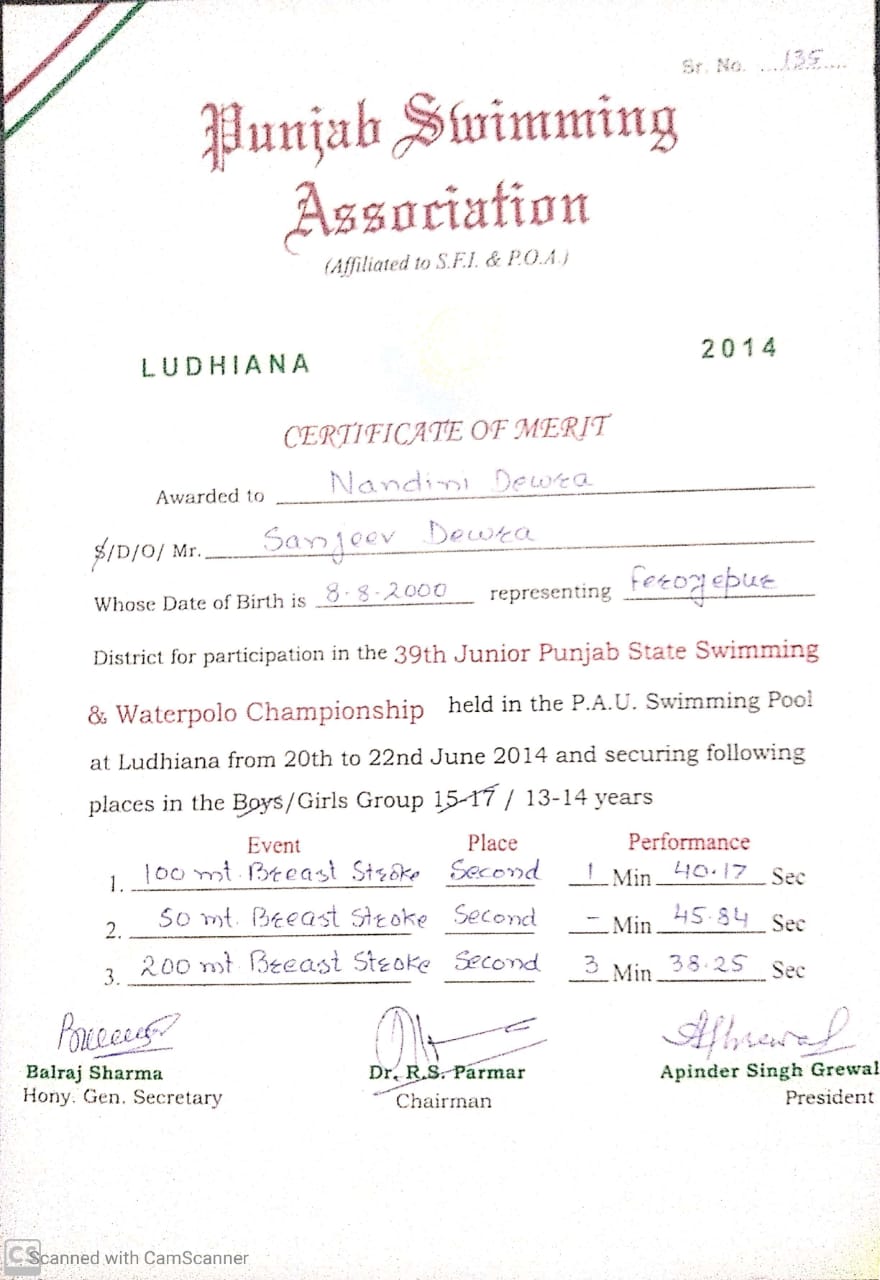 Sr. No. ...135....
Punjab Swimming
Association
(Affiliated to S.F.I. & P.O.A.)
LUDHIANA 2014
CERTIFICATE OF MERIT
Awarded to Nandini Dewra
S/D/O/ Mr. Sanjeev Dewra
Whose Date of Birth is 8-8-2000 representing Ferozepur
District for participation in the 39th Junior Punjab State Swimming
& Waterpolo Championship held in the P.A.U. Swimming Pool
at Ludhiana from 20th to 22nd June 2014 and securing following
places in the Boys/Girls Group 15-17 / 13-14 years
Event Place Performance
1. 100 mt. Breast Stroke Second 1 Min 40.17 Sec
2. 50 mt. Breast Stroke Second - Min 45.84 Sec
3. 200 mt. Breast Stroke Second 3 Min 38.25 Sec
Balraj Sharma Dr. R.S. Parmar Apinder Singh Grewal
Hony. Gen. Secretary Chairman President
CS Scanned with CamScanner